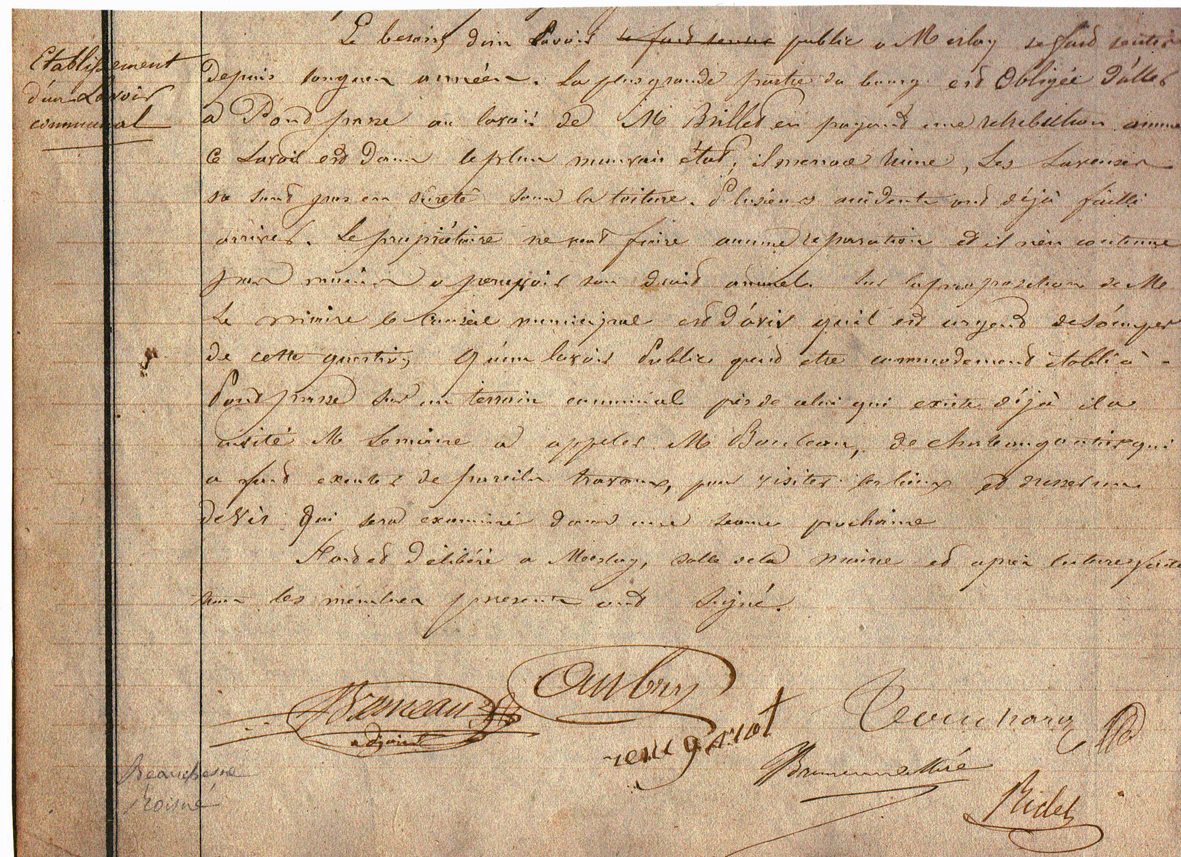 Etablissement
d'un Lavoir
communal
Le besoin d'un Lavoir le fait sentir public a Meslay se fait sentir
depuis longues années. La plus grande partie du bourg est Obligée d'aller
a Pont perre au lavoir de M Brillet en payant une retribution annue
Ce Lavoir est dans le plus mauvais état, il menace ruine, Les Laveuses
ne sont pas en sûreté sous la toiture. Plusieurs accidents ont déjà failli
arriver. Le propriétaire ne veut faire aucune reparation et il n'en continue
pas moins a percevoir son droit annuel. Sur la proposition de M
Le maire le Conseil municipal est d'avis qu'il est urgent de s'occuper
de cette question, Qu'un lavoir Public peut etre commodement établi à
Pont perre sur un terrain communal près de celui qui existe déjà il a
invité M Lemaire a appeler M Bouleau, de chateaugontier qui
a fait executer de pareils travaux, pour visiter les lieux et dresser un
devis qui sera examiné dans une seance prochaine
Fait et Délibéré a Meslay, salle de la mairie et après lecture faite
tous les membres presents ont signé.
Aubry
adjoint
Touchard
Ridet
Beauchesne